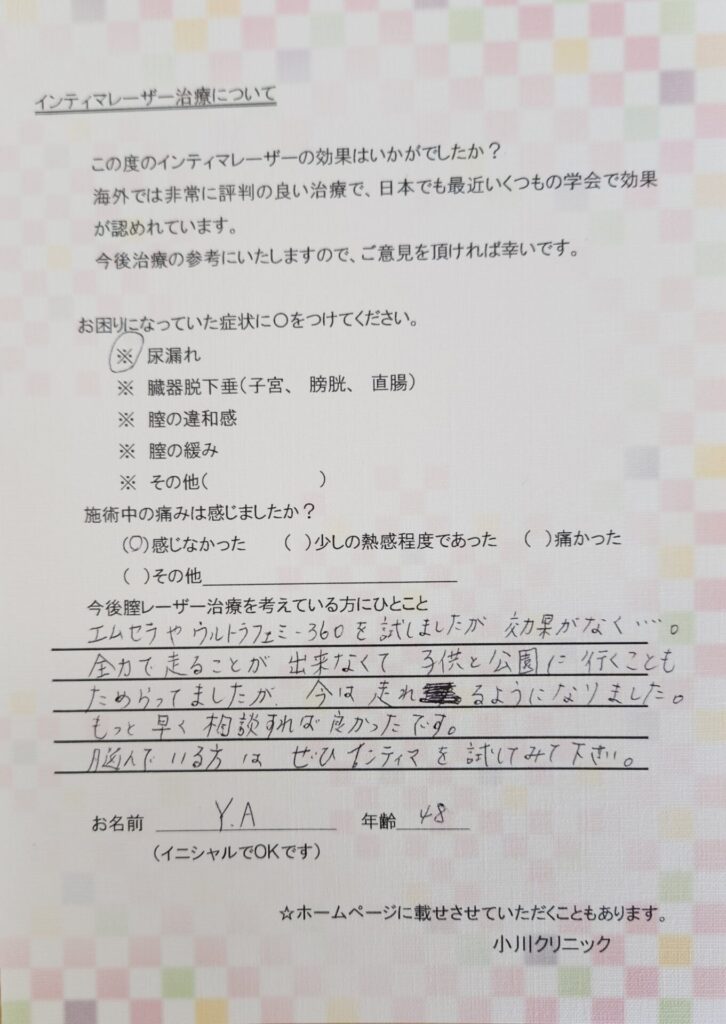 インティマレーザー治療について
この度のインティマレーザーの効果はいかがでしたか？
海外では非常に評判の良い治療で、日本でも最近いくつもの学会で効果
が認めれています。
今後治療の参考にいたしますので、ご意見を頂ければ幸いです。
お困りになっていた症状に〇をつけてください。
※ 尿漏れ
※ 臓器脱下垂(子宮、 膀胱、 直腸)
※ 膣の違和感
※ 膣の緩み
※ その他( )
施術中の痛みは感じましたか？
(〇)感じなかった ( )少しの熱感程度であった ( )痛かった
( )その他
今後膣レーザー治療を考えている方にひとこと
エムセラやウルトラフェミー360を試しましたが 効果がなく…。
全力で走ることが 出来なくて 子供と公園に行くことも
ためらってましたが、今は走れるようになりました。
もっと早く相談すれば良かったです。
悩んでいる方は ぜひインティマを試してみて下さい。
お名前 Y.A 年齢 48
(イニシャルでOKです)
☆ホームページに載せさせていただくこともあります。
小川クリニック